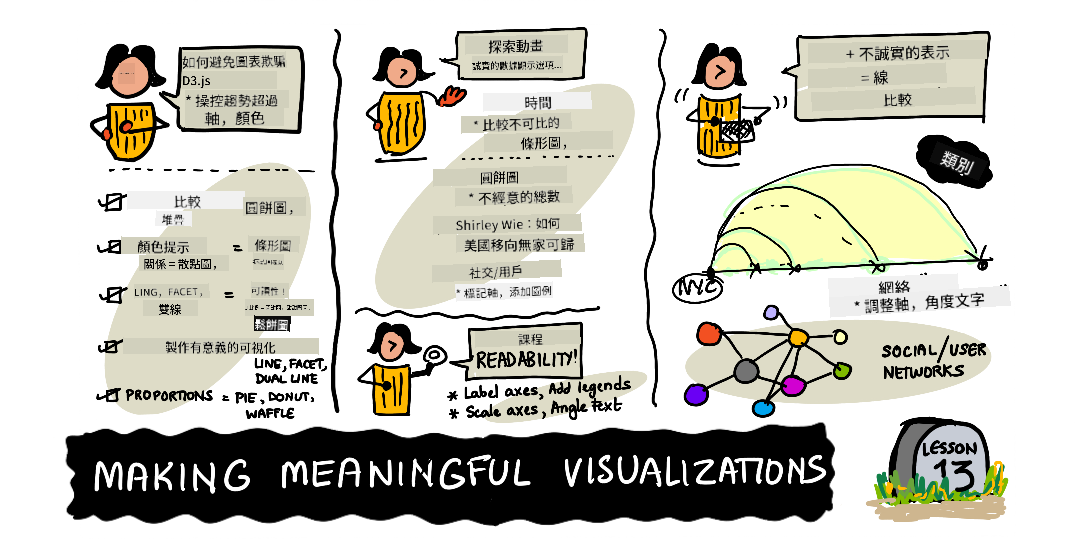 如何避免圖表欺騙
D3.js
* 操控趨勢超過
軸，顏色
比較
圓餅圖，
堆疊
顏色提示 = 條形圖
關係 = 散點圖，
LING，FACET， = 可讀性！
雙線
鬆餅圖
製作有意義的可視化
LINE, FACET,
DUAL LINE
PROPORTIONS = PIE, DONUT,
WAFFLE
探索動畫
誠實的數據顯示選項...
時間
* 比較不可比的
條形圖，
圓餅圖
* 不經意的總數
Shirley Wie：如何
美國移向無家可歸
社交/用戶
* 標記軸，添加圖例
課程
READABILITY!
* Label axes, Add legends
* Scale axes, Angle text
+ 不誠實的表示
= 線
比較
類別
NYC
網絡
* 調整軸，角度文字
SOCIAL/USER
NETWORKS
MAKING MEANINGFUL VISUALIZATIONS
LESSON
13